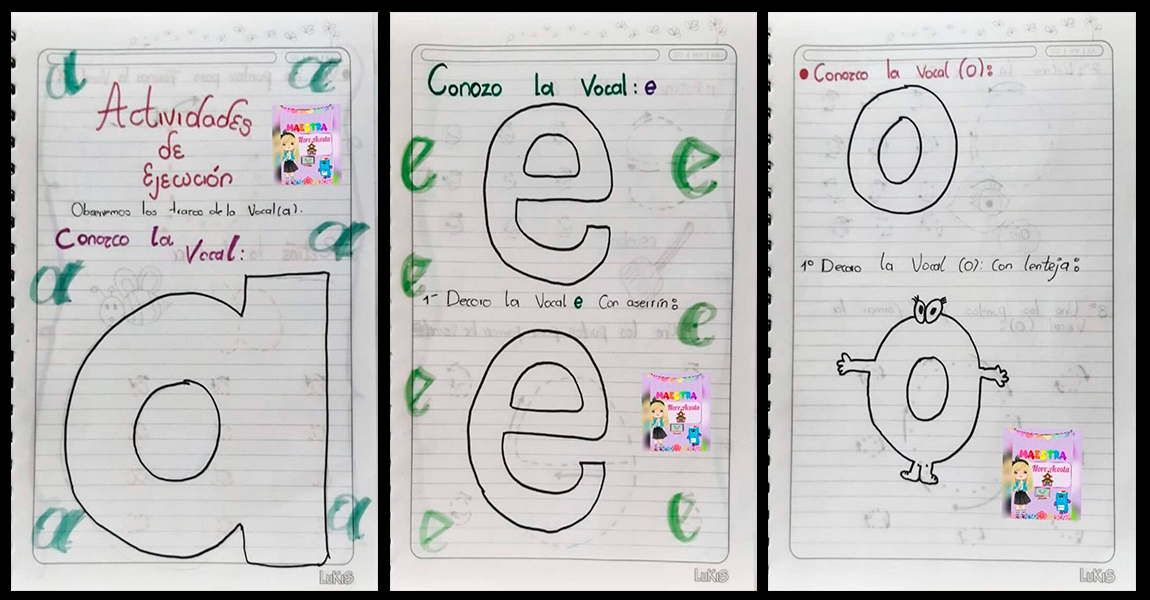 a
a
Actividades
de
Ejecución
MAESTRA
Nore Acosta
Observemos los trazos de la Vocal (a).
Conozco la
Vocal:
a
a
a
a
a
LuKiS
Conozo la Vocal: e
e
e
e
e
1- Decoro la Vocal e Con aserrín:
e
e
e
MAESTRA
Nore Acosta
e
e
e
LuKiS
Conozco la Vocal (O):
o
1º Decoro la Vocal (O): Con lenteja:
o
MAESTRA
Nore Acosta
LuKiS